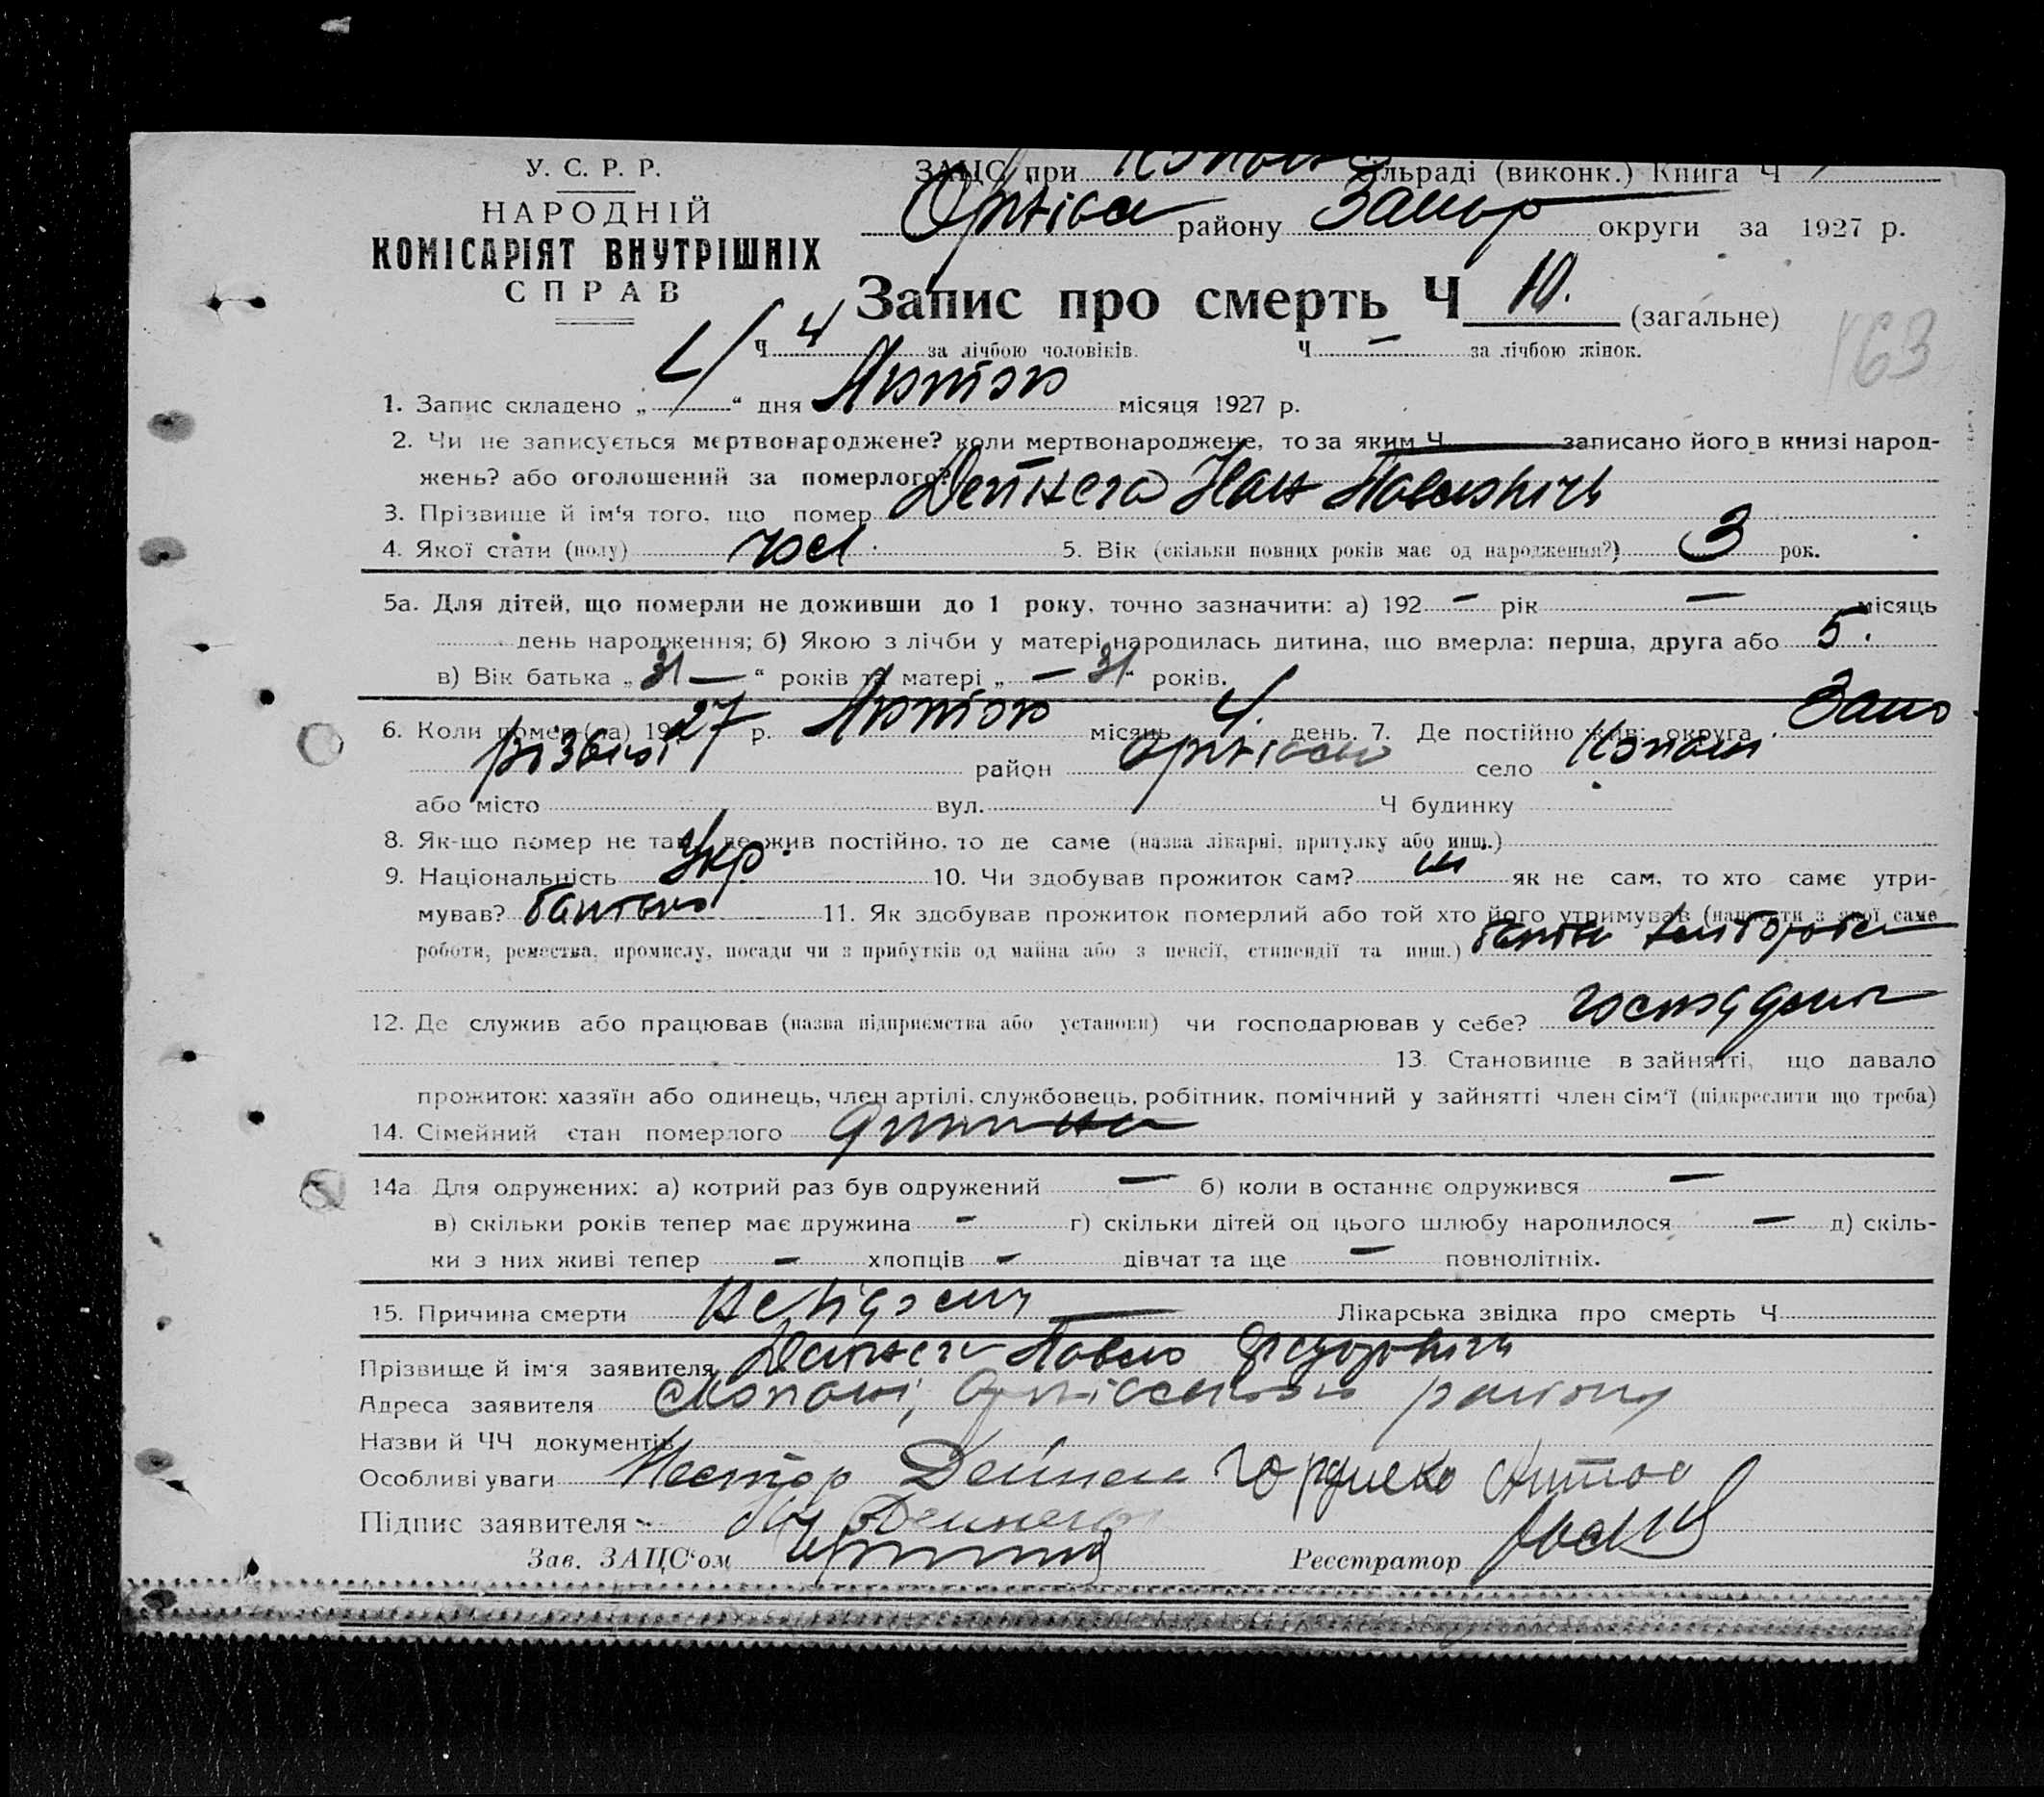 У. С. Р. Р.
НАРОДНІЙ
КОМІСАРІЯТ ВНУТРІШНІХ
СПРАВ
ЗАЦС при сільраді (виконк.) Книга Ч
Оріхів району Запор округи за 1927 р.
Запис про смерть Ч 10. (загальне)
163
Ч 4 за лічбою чоловіків. Ч — за лічбою жінок.
1. Запис складено „ “ дня Лютого місяця 1927 р.
2. Чи не записується мертвонароджене? коли мертвонароджене, то за яким Ч записано його в книзі народ-
жень? або оголошений за померлого?
3. Прізвище й ім‘я того, що помер Дейнега Іван Павлович
4. Якої стати (полу) чол. 5. Вік (скільки повних років має од народження?) 3 рок.
5а. Для дітей, що померли не доживши до 1 року, точно зазначити: а) 192 – рік — місяць
день народження; б) Якою з лічби у матері народилась дитина, що вмерла: перша, друга або 5.
в) Вік батька „ 31 — “ років та матері „ — 31 “ років.
6. Коли помер (ла) 1927 р. Лютого місяць 4. день. 7. Де постійно жив: округа Запо
різької район Оріхівськ село Копані
або місто вул. Ч будинку
8. Як-що помер не там, де жив постійно, то де саме (назва лікарні, притулку або инш.)
9. Національність Укр. 10. Чи здобував прожиток сам? ні як не сам, то хто саме утри-
мував? батько 11. Як здобував прожиток померлий або той хто його утримував (написати з якої саме
роботи, ремества, промислу, посади чи з прибутків од майна або з пенсії, стипендії та инш.)
12. Де служив або працював (назва підприємства або установи) чи господарював у себе?
13. Становище в зайнятті, що давало
прожиток: хазяїн або одинець, член артілі, службовець, робітник, помічний у зайнятті член сім‘ї (підкреслити що треба)
14. Сімейний стан померлого дитина
14а Для одружених: а) котрий раз був одружений — б) коли в останнє одружився —
в) скільки років тепер має дружина – г) скільки дітей од цього шлюбу народилося — д) скіль-
ки з них живі тепер – хлопців – дівчат та ще — повнолітніх.
15. Причина смерти невідома — Лікарська звідка про смерть Ч
Прізвище й ім‘я заявителя Дейнега Павло Федорович
Адреса заявителя с Копані, Оріхівського району
Назви й ЧЧ документів
Особливі уваги Нестор Дейнега Гордієнко Антон
Підпис заявителя Дейнега
Зав. ЗАЦС‘ом Реєстратор